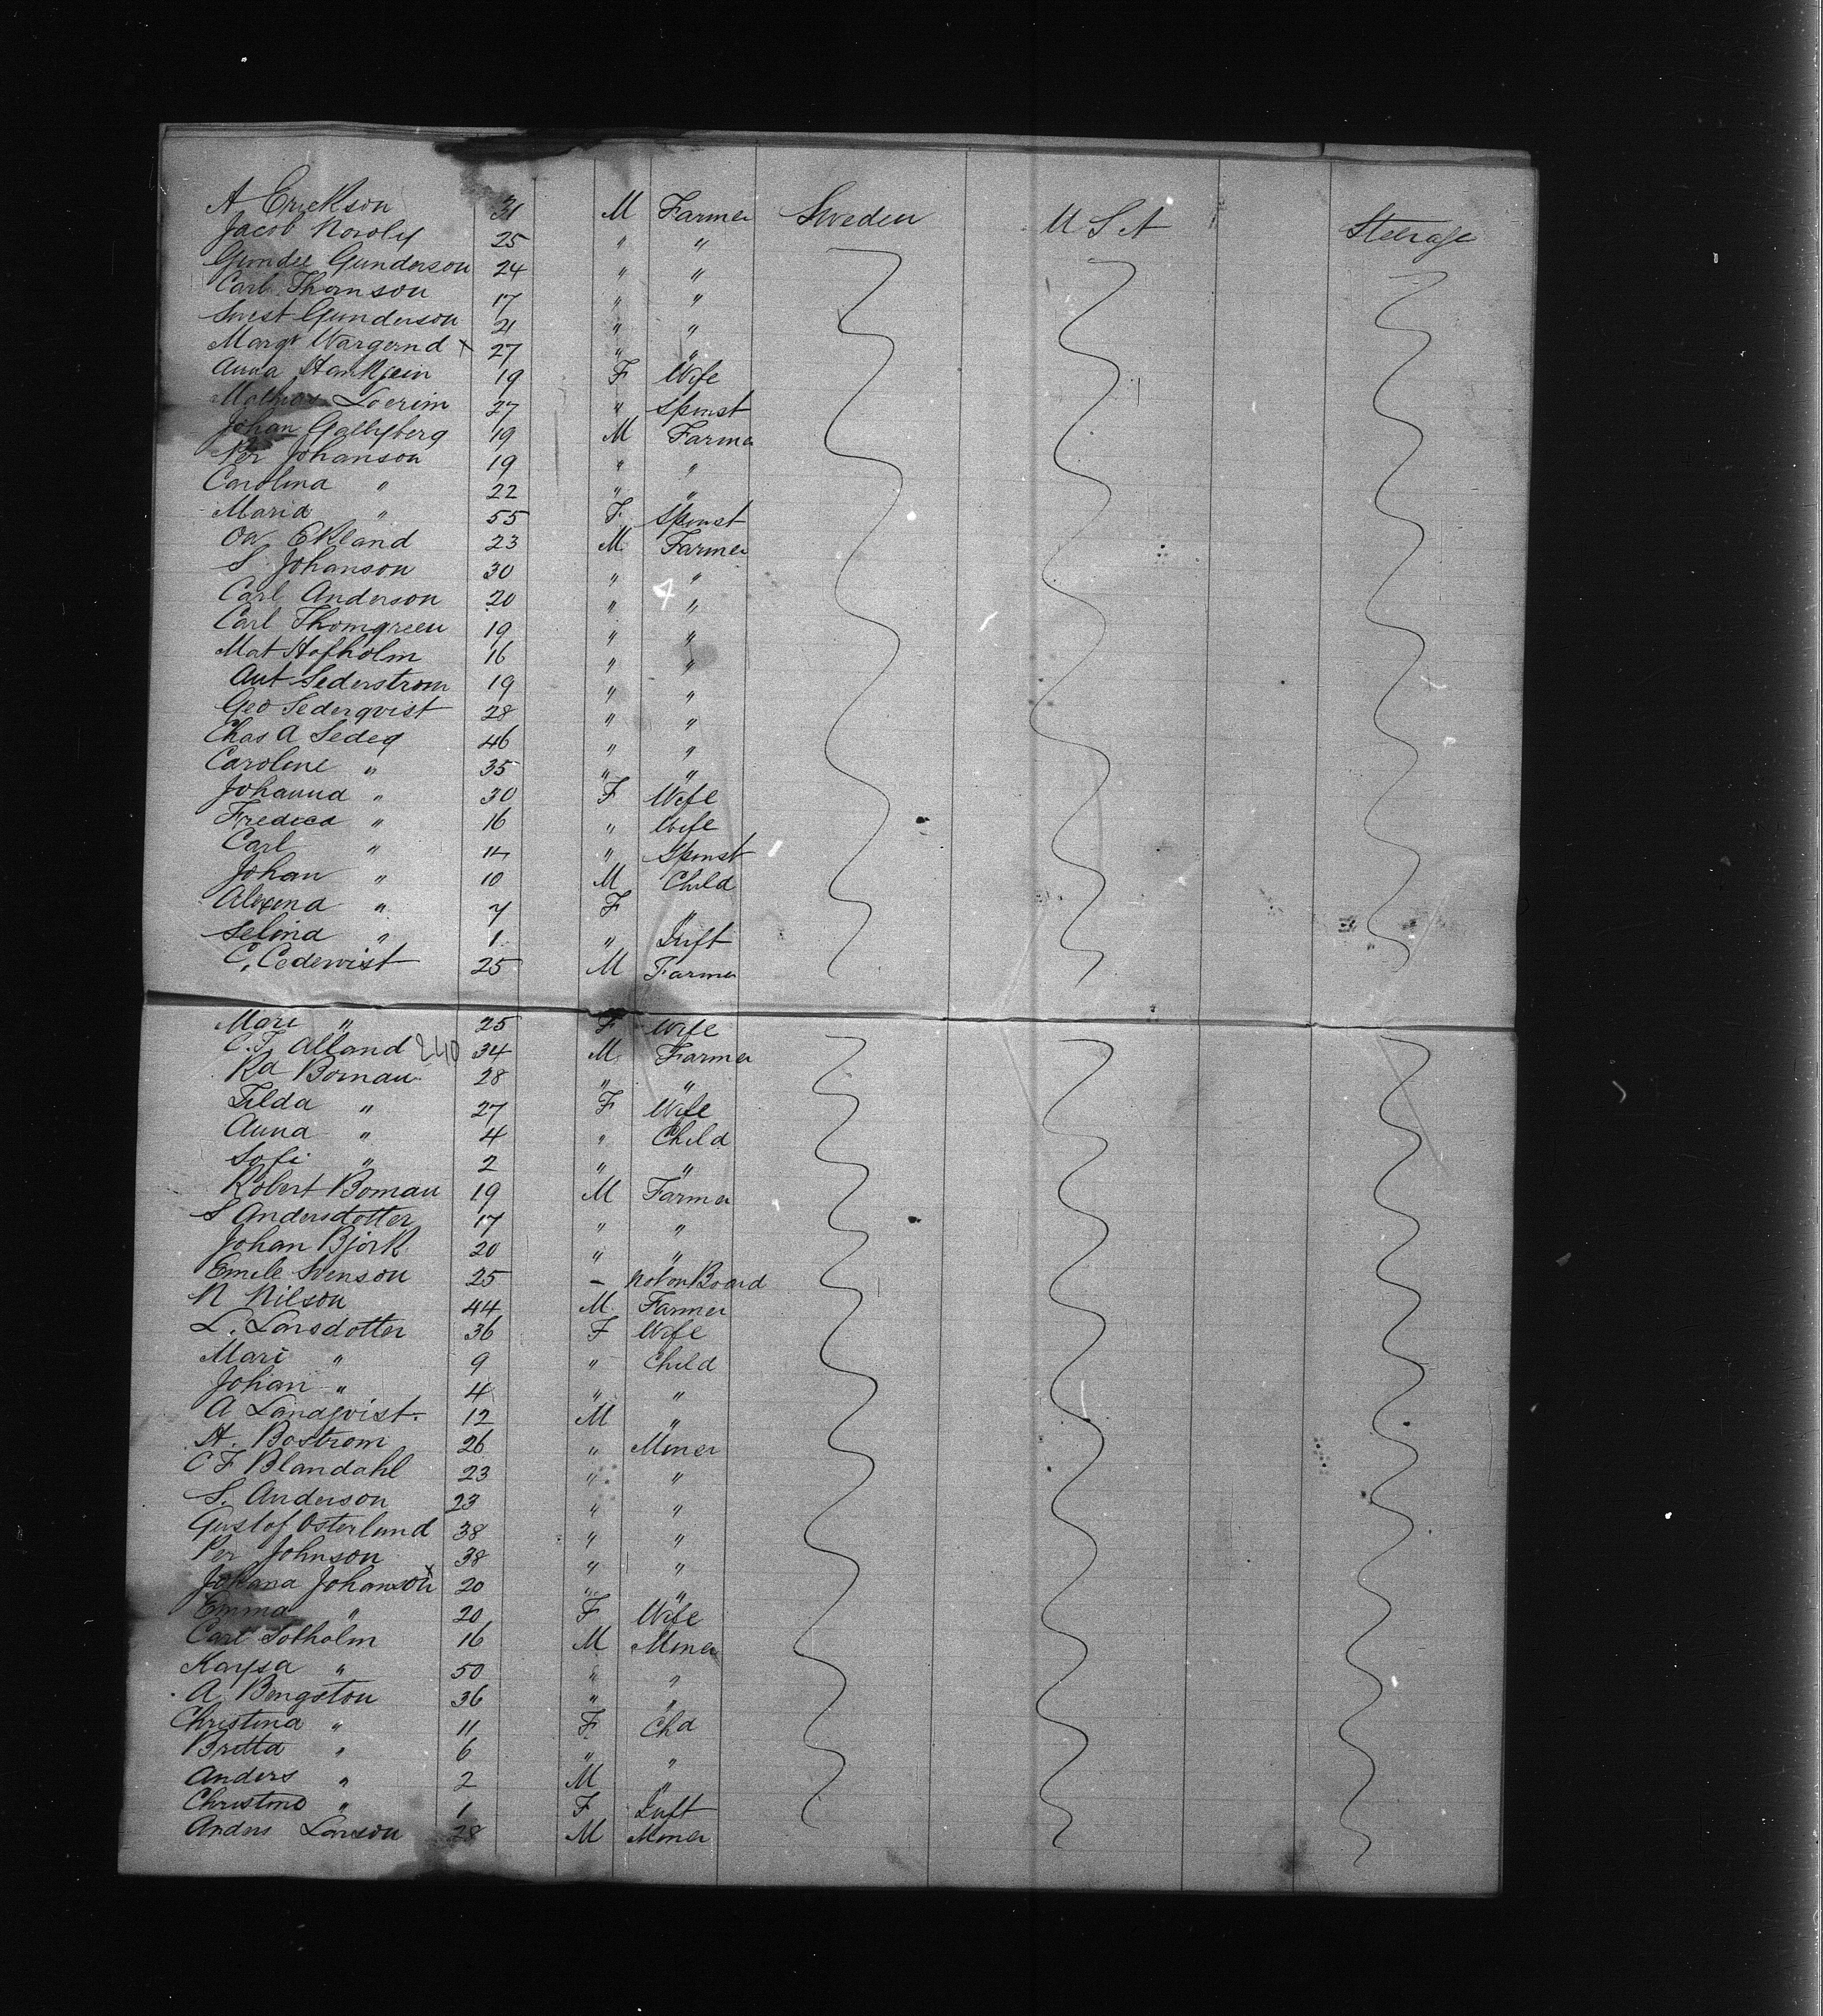 A Erickson 31 M Farmer Sweden U S A Steerage
Jacob Noroly 25 " "
Gunder Gunderson 24 " "
Carl Thornson 17 " "
Gunderson 21 " "
Margt Wargernd x 27 " "
Anna 19 F Wife
Mathias Loerim 27 " Spinst
Johan Gallyberg 19 M Farmer
Per Johanson 19 " "
Carolina " 22 " "
Maria " 55 F Spinst
Ekland 23 M Farmer
S Johanson 30 " "
Carl Anderson 20 " "
Carl Thomgreen 19 " "
Mat Hofholm 16 " "
Aut Sederstrom 19 " "
Geo Sederqvist 28 " "
Chas A Sedeg 46 " "
Caroline " 35 " "
Johanna " 30 F Wife
Fredica " 16 " Wife
Carl " 14 " Spinst
Johan " 10 M Child
Alexina " 7 F "
Selina " 1 " Inft
C. Cedervist 25 M Farmer
Mari " 25 F Wife
C. F. Alland 240 34 M Farmer
Ka Boman 28 " "
Tilda " 27 F Wife
Anna " 4 " Child
Sofi " 2 " "
Robert Boman 19 M Farmer
S Andersdotter 17 " "
Johan Bjork 20 " "
Emile Svenson 25 - Not on Board
N Nilson 44 M Farmer
L. Larsdotter 36 F Wife
Mari " 9 " Child
Johan " 4 " "
A Landqvist 12 M "
A. Bostrom 26 " Miner
C F Blandahl 23 " "
S. Anderson 23 " "
Gustof Osterlund 38 " "
Per Johnson 38 " "
Johana Johanson x 20 " "
Emma " 20 F Wife
Carl Solholm 16 M Miner
Kaysa " 50 " "
A. Bengston 36 " "
Christina " 11 F Chd
Britta " 6 " "
Anders " 2 M "
Christine " 1 F Inft
Anders Larson 28 M Miner